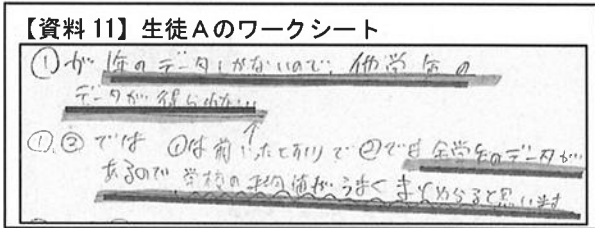 【資料 11】生徒Aのワークシート
①が 1年のデータしかないので、他学年の
データが得られない
①,②では ①は前いったとおりで②では全学年のデータが
あるので 学校の平均値がうまくまとめられると思います